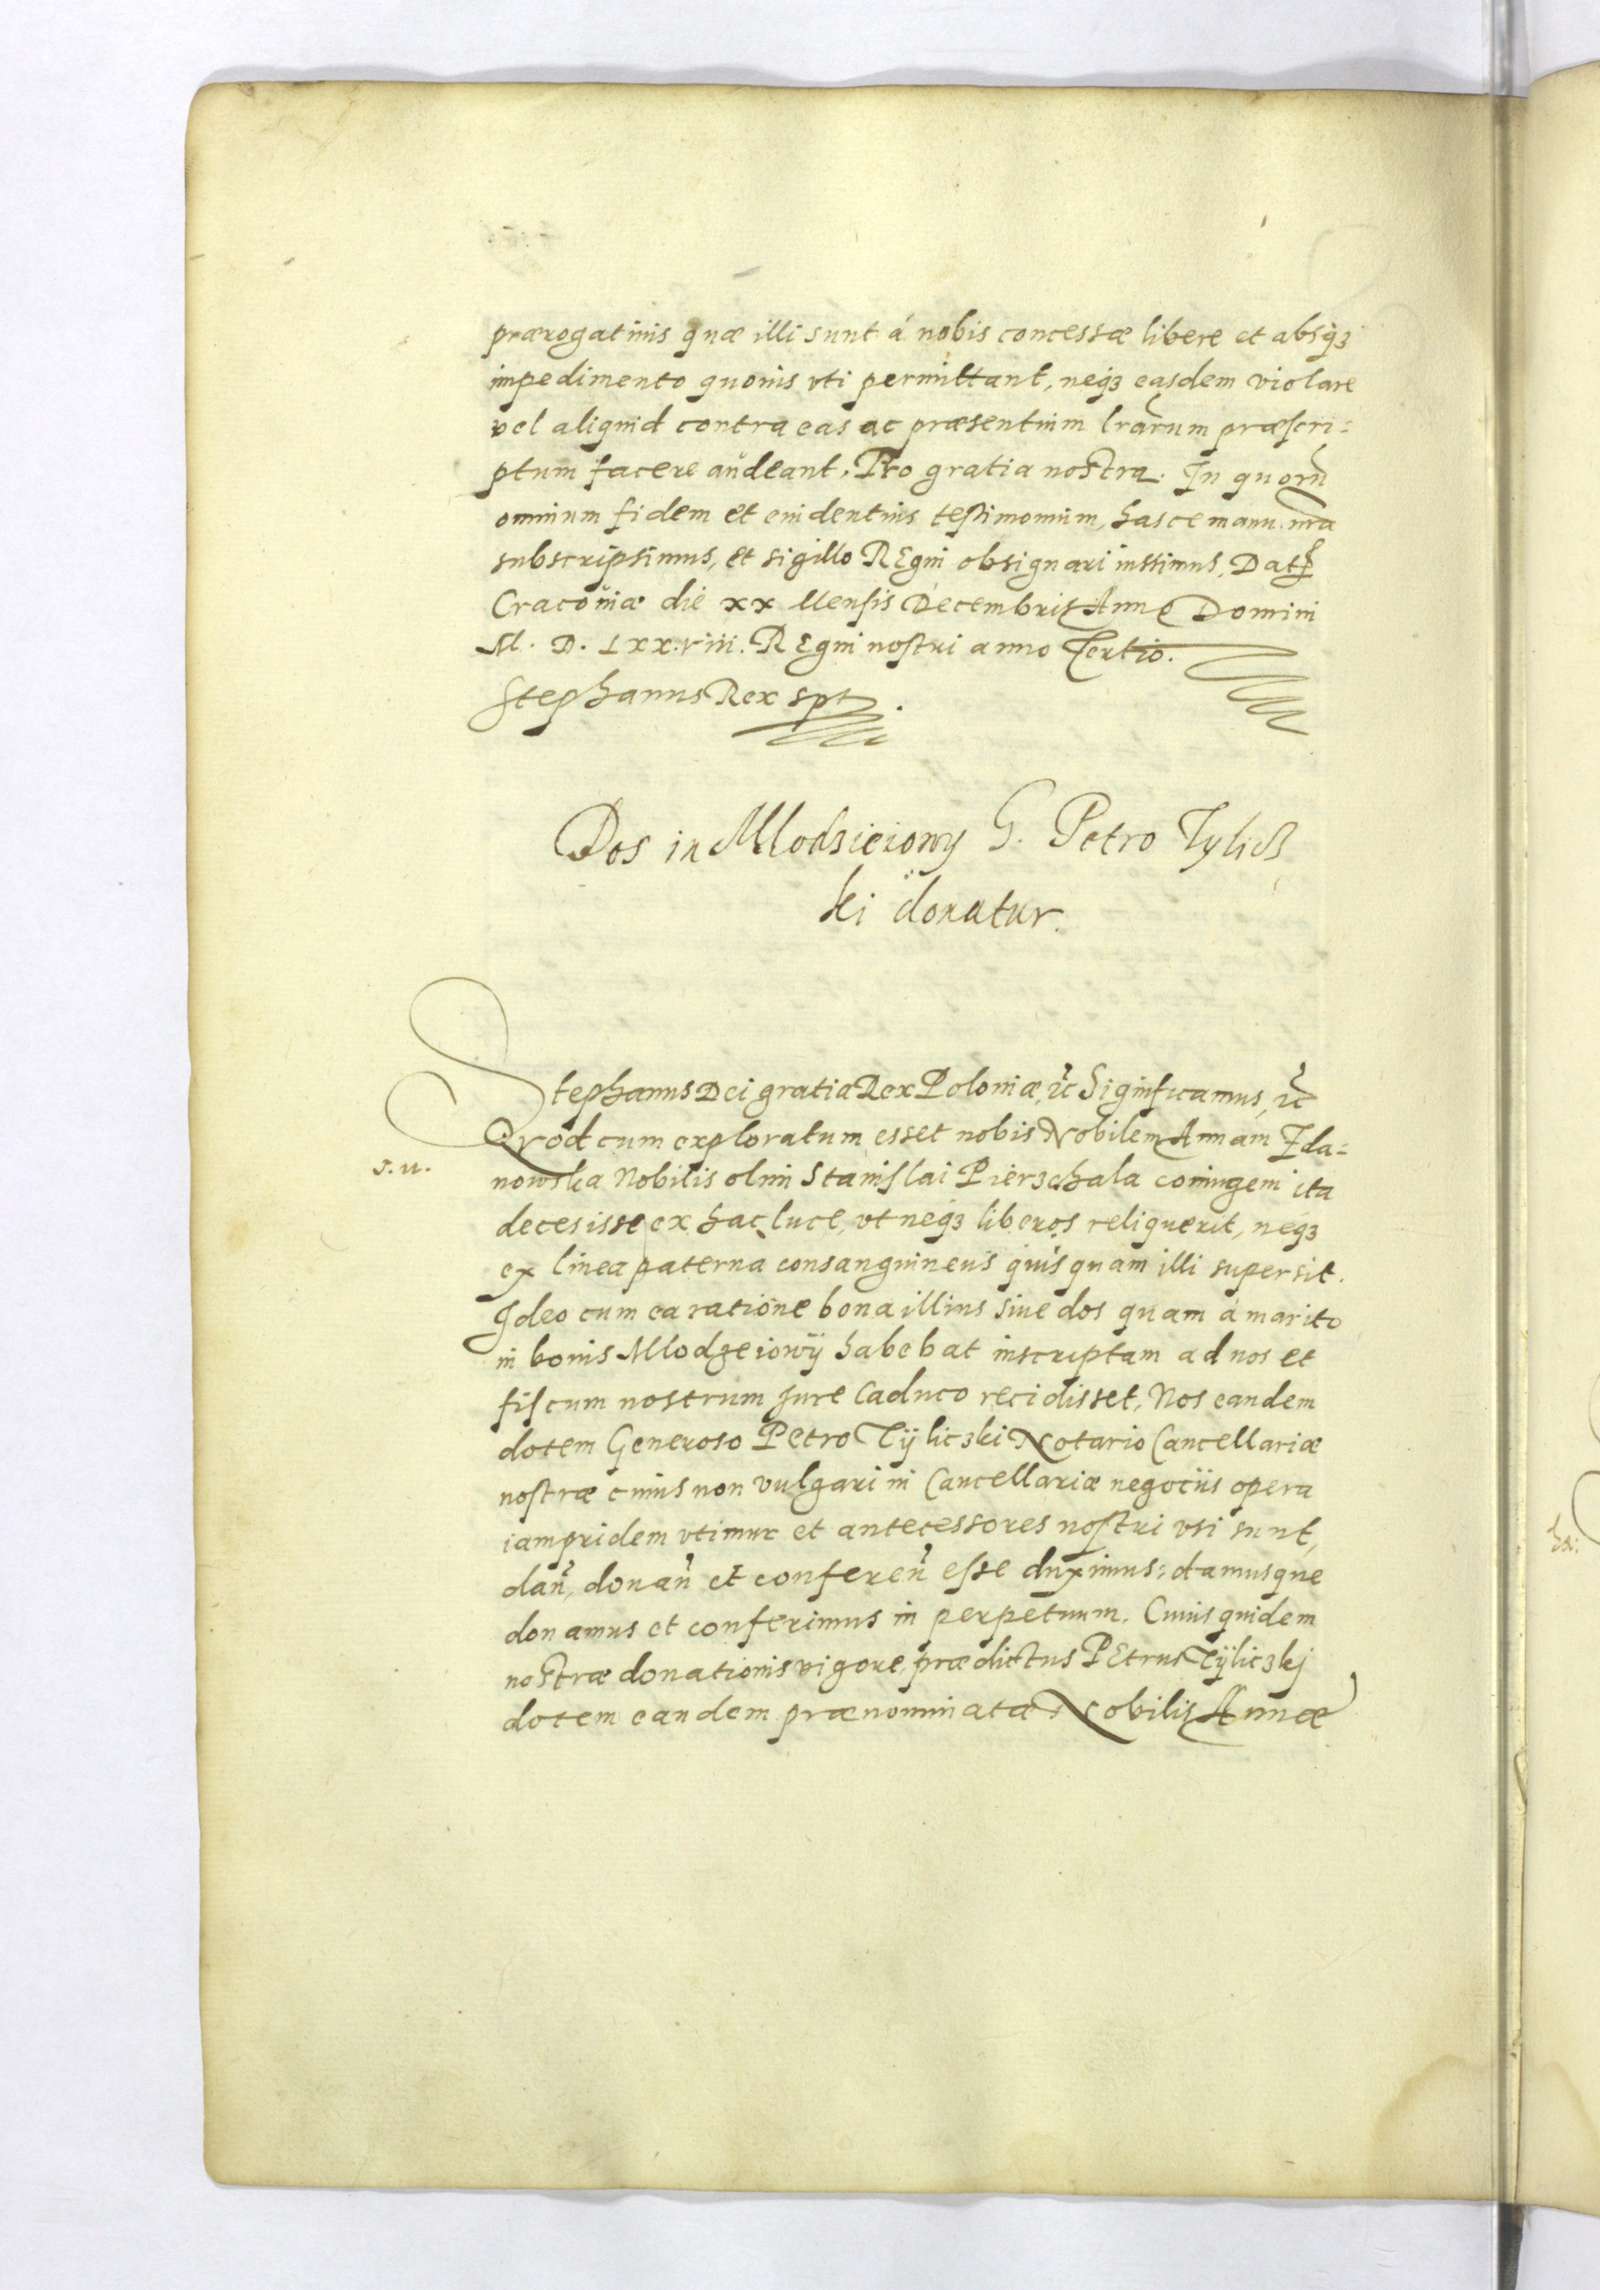 prærogatiuis quæ illi sunt á nobis concessæ libere et absqꝫ
impedimento quouis vti permittant, neqꝫ easdem violare
vel aliquid contra eas ac præsentium lrãrum præscri=
ptum facere audeant. Pro gratia nostra. In quorũ
omnium fidem et euidentius testimonium, hasce manu nrã
subscripsimus, et sigillo REgni obsignari iussimus. Dat.
Cracouiæ die xx Mensis Decembris Anno Domini
M. D. LXX.viii. REgni nostri anno Tertio.
Stephanus Rex spt.
Dos in Mlodzieiowy G. Petro Tylicz
ki donatur.
Stephanus Dei gratia Rex Poloniæ, ꝛc̃ Significamus, ꝛc̃
Quod cum exploratum esset nobis Nobilem Annam Zda=
s. n.
nowska Nobilis olim Stanislai Pierzchala coniugem ita
decesisse ex hac luce, vt neqꝫ liberos reliquerit, neqꝫ
ex linea paterna consanguineus quisquam illi supersit.
Ideo cum ea ratione bona illius siue dos quam á marito
in bonis Mlodzeiowÿ habebat inscriptam ad nos et
fiscum nostrum Jure Caduco recidisset, Nos eandem
dotem Generoso Petro Tÿliczki Notario Cancellariæ
nostræ cuius non vulgari in Cancellariæ negociis opera
iampridem vtimur et antecessores nostri vsi sunt,
dañ, donañ et confereñ esse duximus: damusque
donamus et conferimus in perpetuum. Cuius quidem
nostræ donationis vigore, prædictus PEtrus Tÿliczkj
dotem eandem prænominatæ Nobilis Annæ